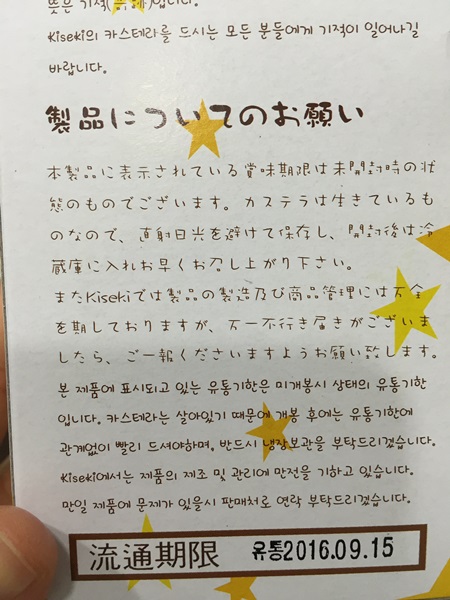 뜻은 기적(奇跡)입니다.
Kiseki의 카스테라를 드시는 모든 분들에게 기적이 일어나길
바랍니다.
製品についてのお願い
本製品に表示されている賞味期限は未開封時の状
態のものでございます。カステラは生きているも
のなので、直射日光を避けて保存し、開封後は冷
蔵庫に入れお早くお召し上がり下さい。
またKisekiでは製品の製造及び商品管理には万全
を期しておりますが、万一不行き届きがございま
したら、ご一報くださいますようお願い致します。
본 제품에 표시되고 있는 유통기한은 미개봉시 상태의 유통기한
입니다. 카스테라는 살아있기 때문에 개봉 후에는 유통기한에
관계없이 빨리 드셔야하며, 반드시 냉장보관을 부탁드리겠습니다.
Kiseki에서는 제품의 제조 및 관리에 만전을 기하고 있습니다.
만일 제품에 문제가 있을시 판매처로 연락 부탁드리겠습니다.
流通期限 유통2016.09.15